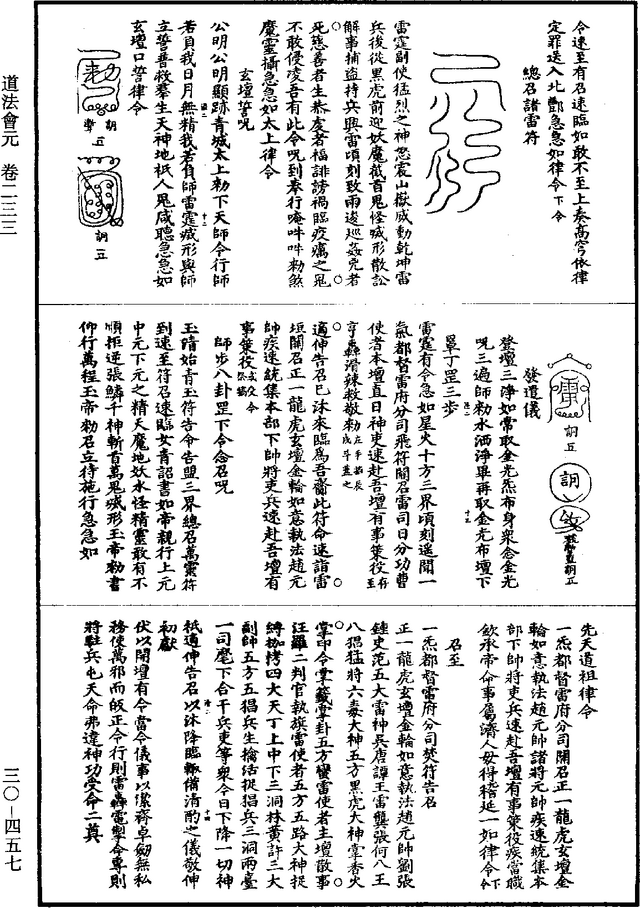 令速至有召速臨如敢不至上奏高穹依律
定罪送入北酆急急如律令下令
總召諸雷符
雷霆副使猛烈之神怒震山嶽威動乾坤雷
兵後從黑虎前迎妖魔截首鬼怪滅形散訟
解事捕盗持兵興雷頃刻致雨逡巡姦兇者
死慈善者生恭虔者福誹謗禍臨疫癘之鬼
不敢侵凌吾有此令咒到奉行唵吽吽勑煞
魔靈攝急急如太上律令
玄壇誓咒
公明公明顯跡青城太上勑下天師令行師
若負我日月無精我若負師雷霆滅形與師
立誓普救羣生天神地祇人鬼咸聽急急如
玄壇口誓律令
勑
胡
五
詗五
道法會元 卷二三三
詗五
詗
發遣儀
登壇三淨如常取金光炁布身衆念金光
呪三遍師勑水洒淨畢再取金光布壇下
單丁罡三步
雷霆有令急如星火十方三界頃刻遥聞一
氣都督雷府分司飛符關召雷司日分功曹
使者本壇直日神吏速赴吾壇有事策役至
亨轟滑辣救敬勑左手掐辰戌斗蓋之
適伸告召已沐來臨爲吾賫此符命速詣雷
垣關召正一龍虎玄壇金輪如意執法趙元
帥疾速統集本部下帥將吏兵速赴吾壇有
事策役令
師步八卦罡下令念召咒
玉隋始青玉符告命告盟三界總召萬靈符
到速至符召速臨女青詔書如帝親行上元
中元下元之精天魔地妖水怪精靈敢有不
順拒逆張鱗千神斬首萬鬼滅形玉帝勑書
仰行萬程玉帝勑召立待施行急急如
先天道祖律令
一炁都督雷府分司關召正一龍虎玄壇金
輪如意執法趙元帥諸將元帥疾速統集本
部下帥將吏兵速赴吾壇有事策役疾當職
欽承帝命事屬濟人毋得稽延一如律令下
召至
一炁都督雷府分司焚符告召
正一龍虎玄壇金輪如意執法趙元帥劉張
鍾史范五大雷神吳唐譚王雷龔張何八王
八猖猛將六毒大神五方黑虎大神掌香火
掌印令掌籤掌卦五方蠻雷使者主壇散事
汪羅二判官執旗雷使者五方五路大神捉
縛枷拷四大天丁上中下三洞林黄許三大
副帥五方五猖兵生擒活捉猖兵三洞兩臺
一司麾下合干兵吏等衆今日下降一切神
祇適伸告召以沐降臨輙備清酌之儀敬伸
初獻
伏以開壇有令當令儀事以潔齊卓劒無私
務使萬邪而皈正令行則雷轟電掣令專則
將駐兵屯天命弗違神功受命二奠
三〇–四五七